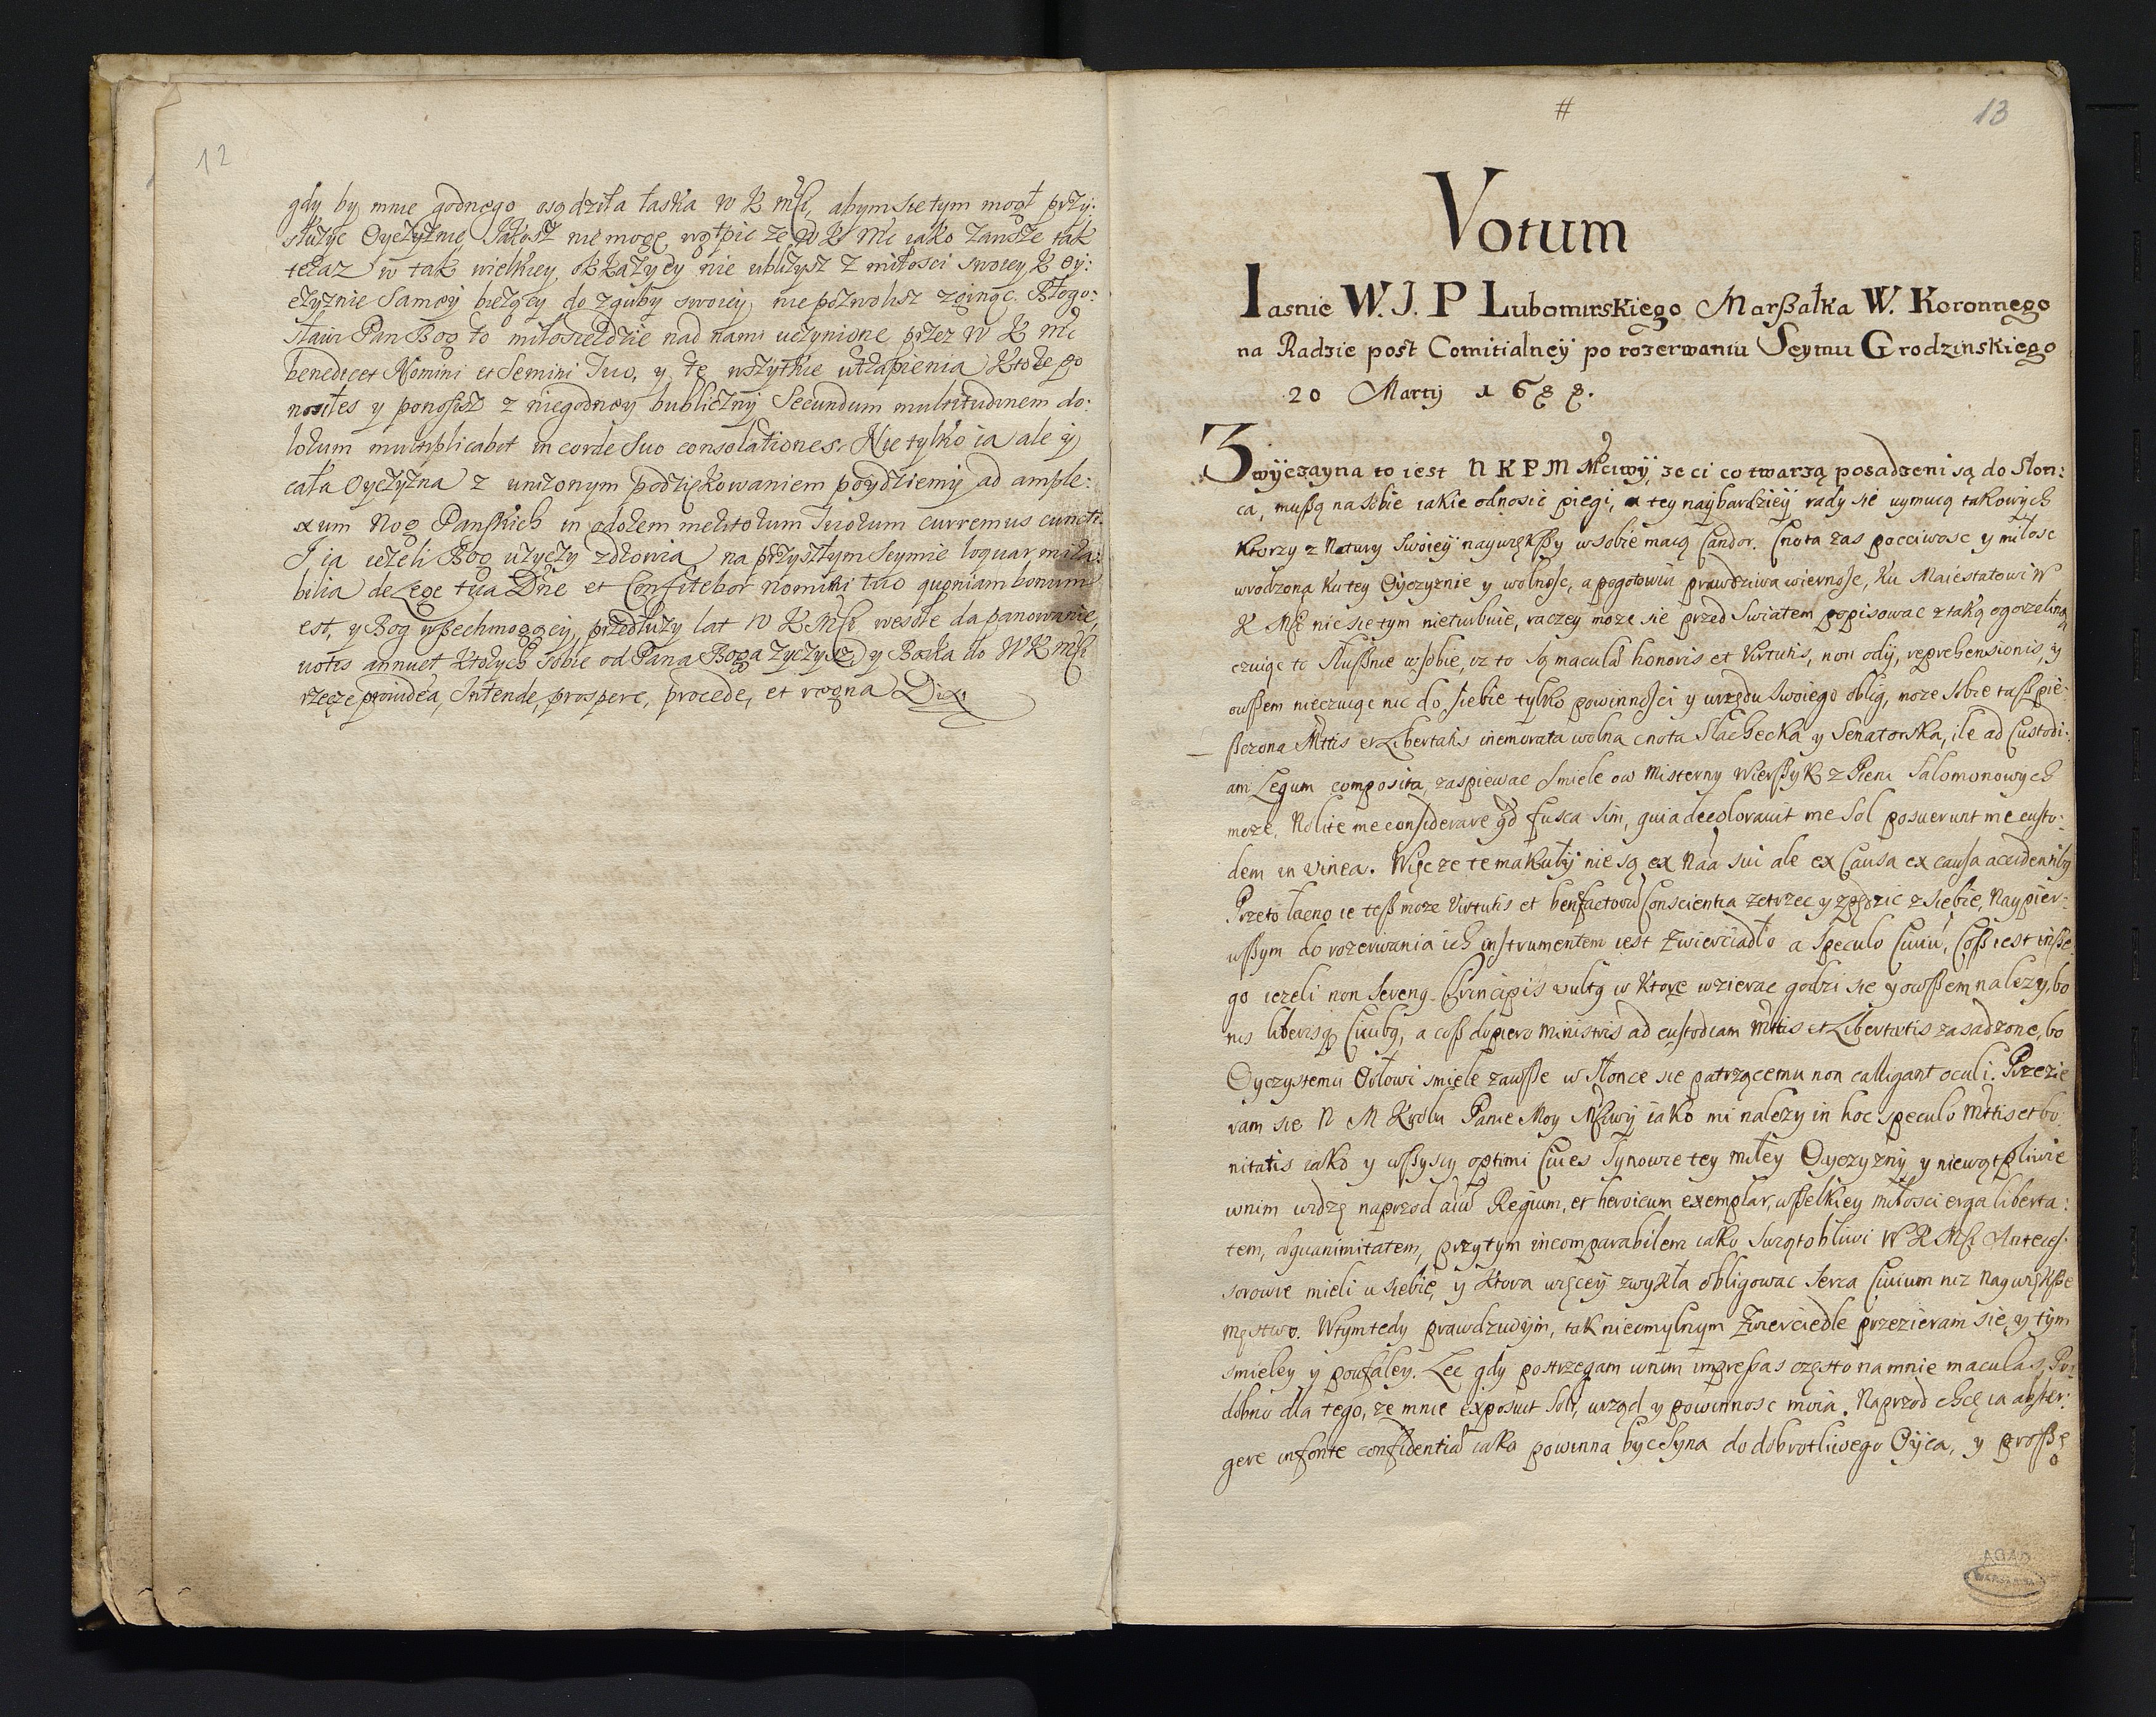 12
gdy by mnie godnego osądziła łaska W K Msci, abym sie tym mogł przy:
służyc Oyczyznie, Jakosz nie mogę wątpic ze W K Mc iako zawsze tak
teraz w tak wielkiey okkazyey nie ubliżysz z miłosci swoiey K Oy:
czyznie Samey bieżącey do zguby swoiey nie pozwolisz zginąc. Błogo:
sław Pan Bog to miłosierdzie nad nami uczynione przez W K Mc
benedicet Nomini et Semini Tuo, y te wszytkie utrapienia Ktore po
nosiłes y ponosisz z niegodney publiczny Secundum multitudinem do:
lorum multiplicabit in corde Suo consolationes. Nie tylko ia ale y
cała Oyczyzna z unizonym podziękowaniem poydziemy ad ample:
xum Nog Panskich in odorem meritorum Tuorum curremus cuncti.
I ia iezeli Bog uzyczy zdrowia na przyszłym Seymie loquar mira:
bilia de Lege tua Dne et Confitebor nomini tuo quoniam bonum
est, y Bog wszechmogący, przedłuży lat W K Msci wesołe da panowanie,
votis annuet Ktorych Sobie od Pana Boga zyczysz y Boska do W K Msci
rzecze prouidea, Intende, prospere, procede, et regna Dixi
#
13
Votum
Iasnie W. J. P Lubomirskiego Marszałka W. Koronnego
na Radzie post Comitialney po rozerwaniu Seymu Grodzinskiego
20 Martij 1688.
Zwyczayna to iest N K P M Mciwy, ze ci co twarzą posadzeni są do Słon:
ca, muszą na sobie iakie odnosic piegi, a tey naybardziey rady sie uymuią takowych
Ktorzy z Natury Swoiey naywiększy w sobie maią Candor. Cnota zas poczciwosc y miłosc
wrodzoną Ku tey Oyczyznie y wolnosc, a pogotowiu prawdziwa wiernosc, Ku Maiestatowi W
K Mci nic sie tym nieturbuie, raczey moze sie przed Swiatem popisowac z taką ogorzeliną
czuiąc to Słusznie w sobie, iz to Są macula honoris et Virtutis, non odij, reprehensionis, y
owszem nieczuiąc nic do siebie tylko powinnosci y urzędu Swoiego oblig, moze Sobie tasz pie:
szczona Mttis et Libertatis inemorata wolna cnota Slachecka y Senatorska, ile ad Custodi:
am Legum composita, zaspiewac Smiele ow Misterny Wierszyk z Pieni Salomonowych
moze, Nolite me considerare qd fusca sim, quia decoloravit me Sol posuerunt me custo:
dem in vinea. Więc ze te makuły nie są ex Naa sui ale ex Causa ex causa accidentibq
Przeto łacno ie tesz moze Virtutis et benfactorū Conscientia zetrzec y zpędzic z siebie, Naypier:
wszym do rozerwania ich instrumentem iest Zwierciadło a Speculo Civiū, Cosz iest insze:
go iezeli non Sereng Principis vultq w Ktore wzierac godzi sie y owszem nalezy, bo
nis liberisq Civibq, a cosz dopiero Ministris ad custodiam Mttis et Libertatis zasadzone, bo
Oyczystemu Orłowi smiele zawsze w Słonce sie patrzącemu non calligant oculi. Przezie
ram sie N M Krolu Panie Moy Mciwy iako mi nalezy in hoc speculo Mttis et bo:
nitatis iako y wszyscy optimi Cives Synowie tey miłey Oyczyzny, y niewątpliwie
w nim widzę naprzod Regium, et heroicum exemplar, wszelkiey miłosci erga liberta:
tem, aequanimitatem, przytym incomparabilem iako Swiątobliwi W K Msci Anteces:
sorowie mieli u siebie, y Ktora więcey zwykła obligowac serca Civium niz Naywiększe
męstwo. W tym tedy prawdziwym, tak nieomylnym Zwierciedle przezieram sie, y tym
smieley y poufaley. Lec gdy postrzegam w nim impressas często na mnie maculas, Po:
dobno dla tego, ze mnie exposuit Soli, urząd y powinnosc moia. Naprzod chcę ia abster:
gere in fonte confidentiæ iako powinna byc Syna do dobrotliwego Oyca, y proszę
o
AGAD
WARSZAWA